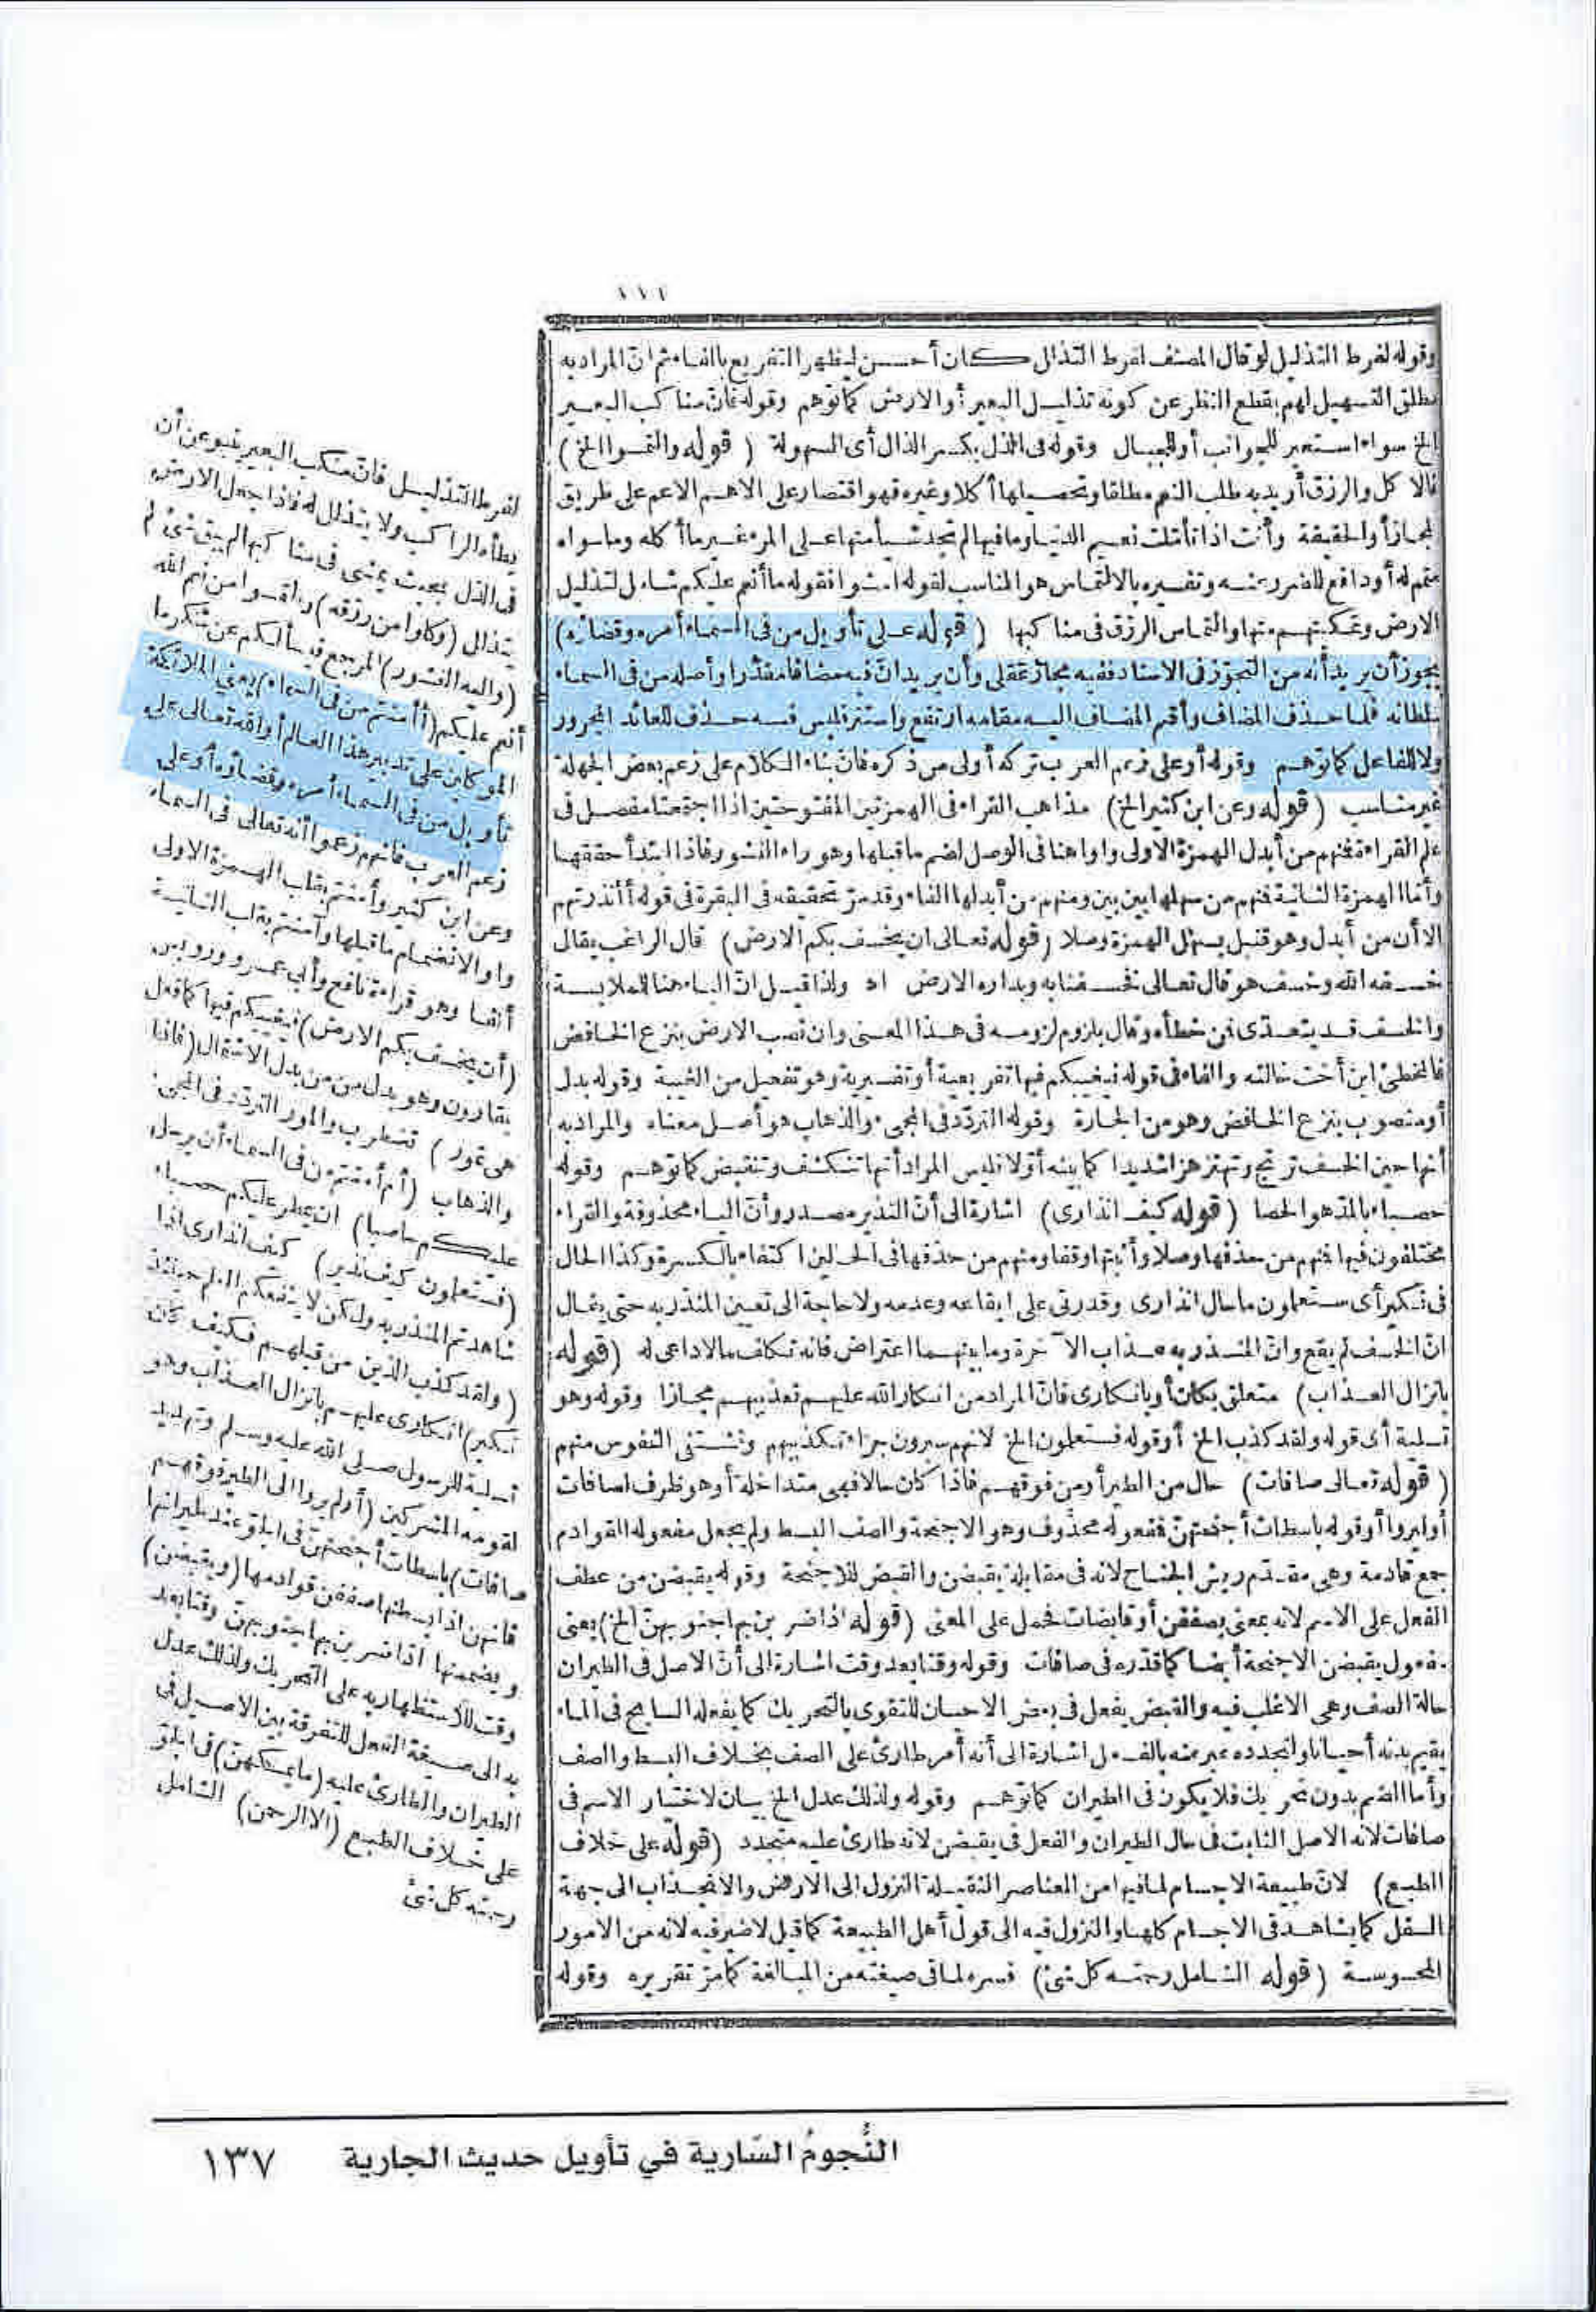 ١١١
وقوله لفرط التذليل لو قال المصنف لفرط التذلل كان أحسن ليظهر التفريع بالفاء ثم ان المراد به
مطلق التسهيل لهم بقطع النظر عن كونه تذليل البعير أو الارض كما توهم وقوله فان مناكب البعير
الخ سواء استعير للجوانب أو للجبال وقوله فى الذل بكسر الذال أى السهولة (قوله والتمسوا الخ)
فالاكل والرزق أريد به طلب النعم مطلقا وتحصيلها أكلا وغيره فهو اقتصار على الاهم الاعم على طريق
المجاز أو الحقيقة وأنت اذا تأملت نعيم الدنيا وما فيها لم تجد شيأ منها على المرء غير ما أكله وما سواه
متمم له أو دافع للضرر عنه وتفسيره بالالتماس هو المناسب لقوله امشوا فقوله ما أنعم عليكم شامل لتذليل
الارض وتمكينهم منها والتماس الرزق فى مناكبها (قوله على تأويل من فى السماء أمره وقضاؤه)
يجوز أن يريد أنه من التجوّز فى الاسناد ففيه مجاز عقلى وأن يريد انّ فيه مضافا مقدّرا وأصله من فى السماء
سلطانه فلما حذف المضاف وأقيم المضاف اليه مقامه ارتفع واستتر فليس فيه حذف للعائد المجرور
ولا للفاعل كما توهم وقوله أو على زعم العرب تركه أولى من ذكره فان بناء الكلام على زعم بعض الجهلة
غير مناسب (قوله وعن ابن كثير الخ) مذاهب القراء فى الهمزتين المفتوحتين اذا اجتمعتا مفصل فى
علم القراءة فمنهم من أبدل الهمزة الاولى واوا هنا فى الوصل لضم ما قبلها وهو راء النشور فاذا ابتدأ حققها
وأما الهمزة الثانية فمنهم من سهلها بين بين ومنهم من أبدلها ألفا وقد مرّ تحقيقه فى البقرة فى قوله أأنذرتهم
الا أن من أبدل وهو قنبل يسهل الهمزة وصلا (قوله تعالى ان يخسف بكم الارض) قال الراغب يقال
خسفه الله وخسف هو قال تعالى فخسفنا به وبداره الارض اه ولذا قيل انّ الباء هنا للملابسة
والخسف قد يتعدّى فمن خطأه وقال بلزوم لزومه فى هذا المعنى وان نصب الارض بنزع الخافض
فالمخطئ ابن أخت خالته والفاء فى قوله فيغيبكم فيها تفريعية أو تفسيرية وهو تفعيل من الغيبة وقوله بدل
أو منصوب بنزع الخافض وهو من الجارة وقوله التردّد فى المجىء والذهاب هو أصل معناه والمراد به
أنها حين الخسف ترتج وتهتز هزا شديدا كما بينه أوّلا فليس المراد أنها تنكشف وتنقبض كما توهم وقوله
حصباء بالمدّ هو الحصا (قوله كيف انذارى) اشارة الى أنّ النذير مصدر وأنّ الياء محذوفة والقراء
مختلفون فيها فمنهم من حذفها وصلا وأثبتها وقفا ومنهم من حذفها فى الحالين اكتفاء بالكسرة وكذا الحال
فى نكير أى ستعلمون ما حال انذارى وقدرتى على ايقاعه وعدمه ولا حاجة الى تعيين المنذر به حتى يقال
انّ الخسف لم يقع وانّ المنذر به عذاب الآخرة وما بينهما اعتراض فانه تكلف ما لا داعى له (قوله
بانزال العذاب) متعلق بكان أو بانكارى فانّ المراد من انكار الله عليهم تعذيبهم مجازا وقوله وهو
تسلية أى قوله ولقد كذب الخ أو قوله فستعلمون الخ لانهم سيرون جزاء تكذيبهم وتشتفى النفوس منهم
(قوله تعالى صافات) حال من الطير أو من فوقهم فاذا كان حالا فهى متداخلة أو هو ظرف لصافات
أو ليروا أو قوله باسطات أجنحتهنّ فمفعوله محذوف وهو الاجنحة والصف البسط ولم يجعل مفعوله القوادم
جمع قادمة وهى مقدّم ريش الجناح لانه فى مقابلة يقبضن والقبض للاجنحة وقوله يقبضن من عطف
الفعل على الاسم لانه بمعنى يصففن أو قابضات فحمل على المعنى (قوله اذا ضربن بها جنوبهنّ الخ) يعنى
مفعول يقبضن الاجنحة أيضا كما قدّره فى صافات وقوله وقتا بعد وقت اشارة الى أنّ الاصل فى الطيران
حالة الصف وهى الاغلب فيه والقبض يفعل فى بعض الاحيان للتقوى بالتحريك كما يفعله السابح فى الماء
يقيم بدنه أحيانا ولتجدده عبر عنه بالفعل اشارة الى أنه أمر طارئ على الصف بخلاف البسط والصف
وأما القبض بدون تحريك فلا يكون فى الطيران كما توهم وقوله ولذلك عدل الخ بيان لاختيار الاسم فى
صافات لانه الاصل الثابت فى حال الطيران والفعل فى يقبضن لانه طارئ عليه متجدد (قوله على خلاف
الطبع) لانّ طبيعة الاجسام لما فيها من العناصر الثقيلة النزول الى الارض والانجذاب الى جهة
السفل كما يشاهد فى الاجسام كلها والنزول فيه الى قول أهل الطبيعة كما قيل لا ضير فيه لانه من الامور
المحسوسة (قوله الشامل رحمته كل شئ) فسره لما فى صيغته من المبالغة كما مرّ تقريره وقوله
لفرط التذليل فانّ منكب البعير ينبو عن أن
يطأه الراكب ولا يتذلل له فاذا جعل الارض
فى الذل بحيث يمشى فى مناكبها لم يبق شئ لم
يتذلل (وكلوا من رزقه) والتمسوا من نعم الله
(واليه النشور) المرجع فيسألكم عن شكر ما
أنعم عليكم (أأمنتم من فى السماء) يعنى الملائكة
الموكلين على تدبير هذا العالم أو الله تعالى على
تأويل من فى السماء أمره وقضاؤه أو على
زعم العرب فانهم زعموا أنه تعالى فى السماء
وعن ابن كثير وأمنتم بقلب الهمزة الاولى
واوا لانضمام ما قبلها وآمنتم بقلب الثانية
ألفا وهو قراءة نافع وأبى عمرو ورويس
(أن يخسف بكم الارض) فيغيبكم فيها كما فعل
بقارون وهو بدل من من بدل الاشتمال (فاذا
هى تمور) تضطرب والمور التردّد فى المجىء
والذهاب (أم أمنتم من فى السماء أن يرسل
عليكم حاصبا) ان يمطر عليكم حصباء
(فستعلمون كيف نذير) كيف انذارى اذا
شاهدتم المنذر به ولكن لا ينفعكم العلم حينئذ
(ولقد كذب الذين من قبلهم فكيف كان
نكير) انكارى عليهم بانزال العذاب وهو
تسلية للرسول صلى الله عليه وسلم وتهديد
لقومه المشركين (أولم يروا الى الطير فوقهم
صافات) باسطات أجنحتهنّ فى الجوّ عند طيرانها
فانهن اذا بسطنها صففن قوادمها (ويقبضن)
ويضممنها اذا ضربن بها جنوبهنّ وقتا بعد
وقت للاستظهار به على التحريك ولذلك عدل
به الى صيغة الفعل للتفرقة بين الاصيل فى
الطيران والطارئ عليه (ما يمسكهنّ) فى الجوّ
على خلاف الطبع (الا الرحمن) الشامل
رحمته كل شئ
النُّجومُ السَّارية في تأويل حديث الجارية ١٣٧